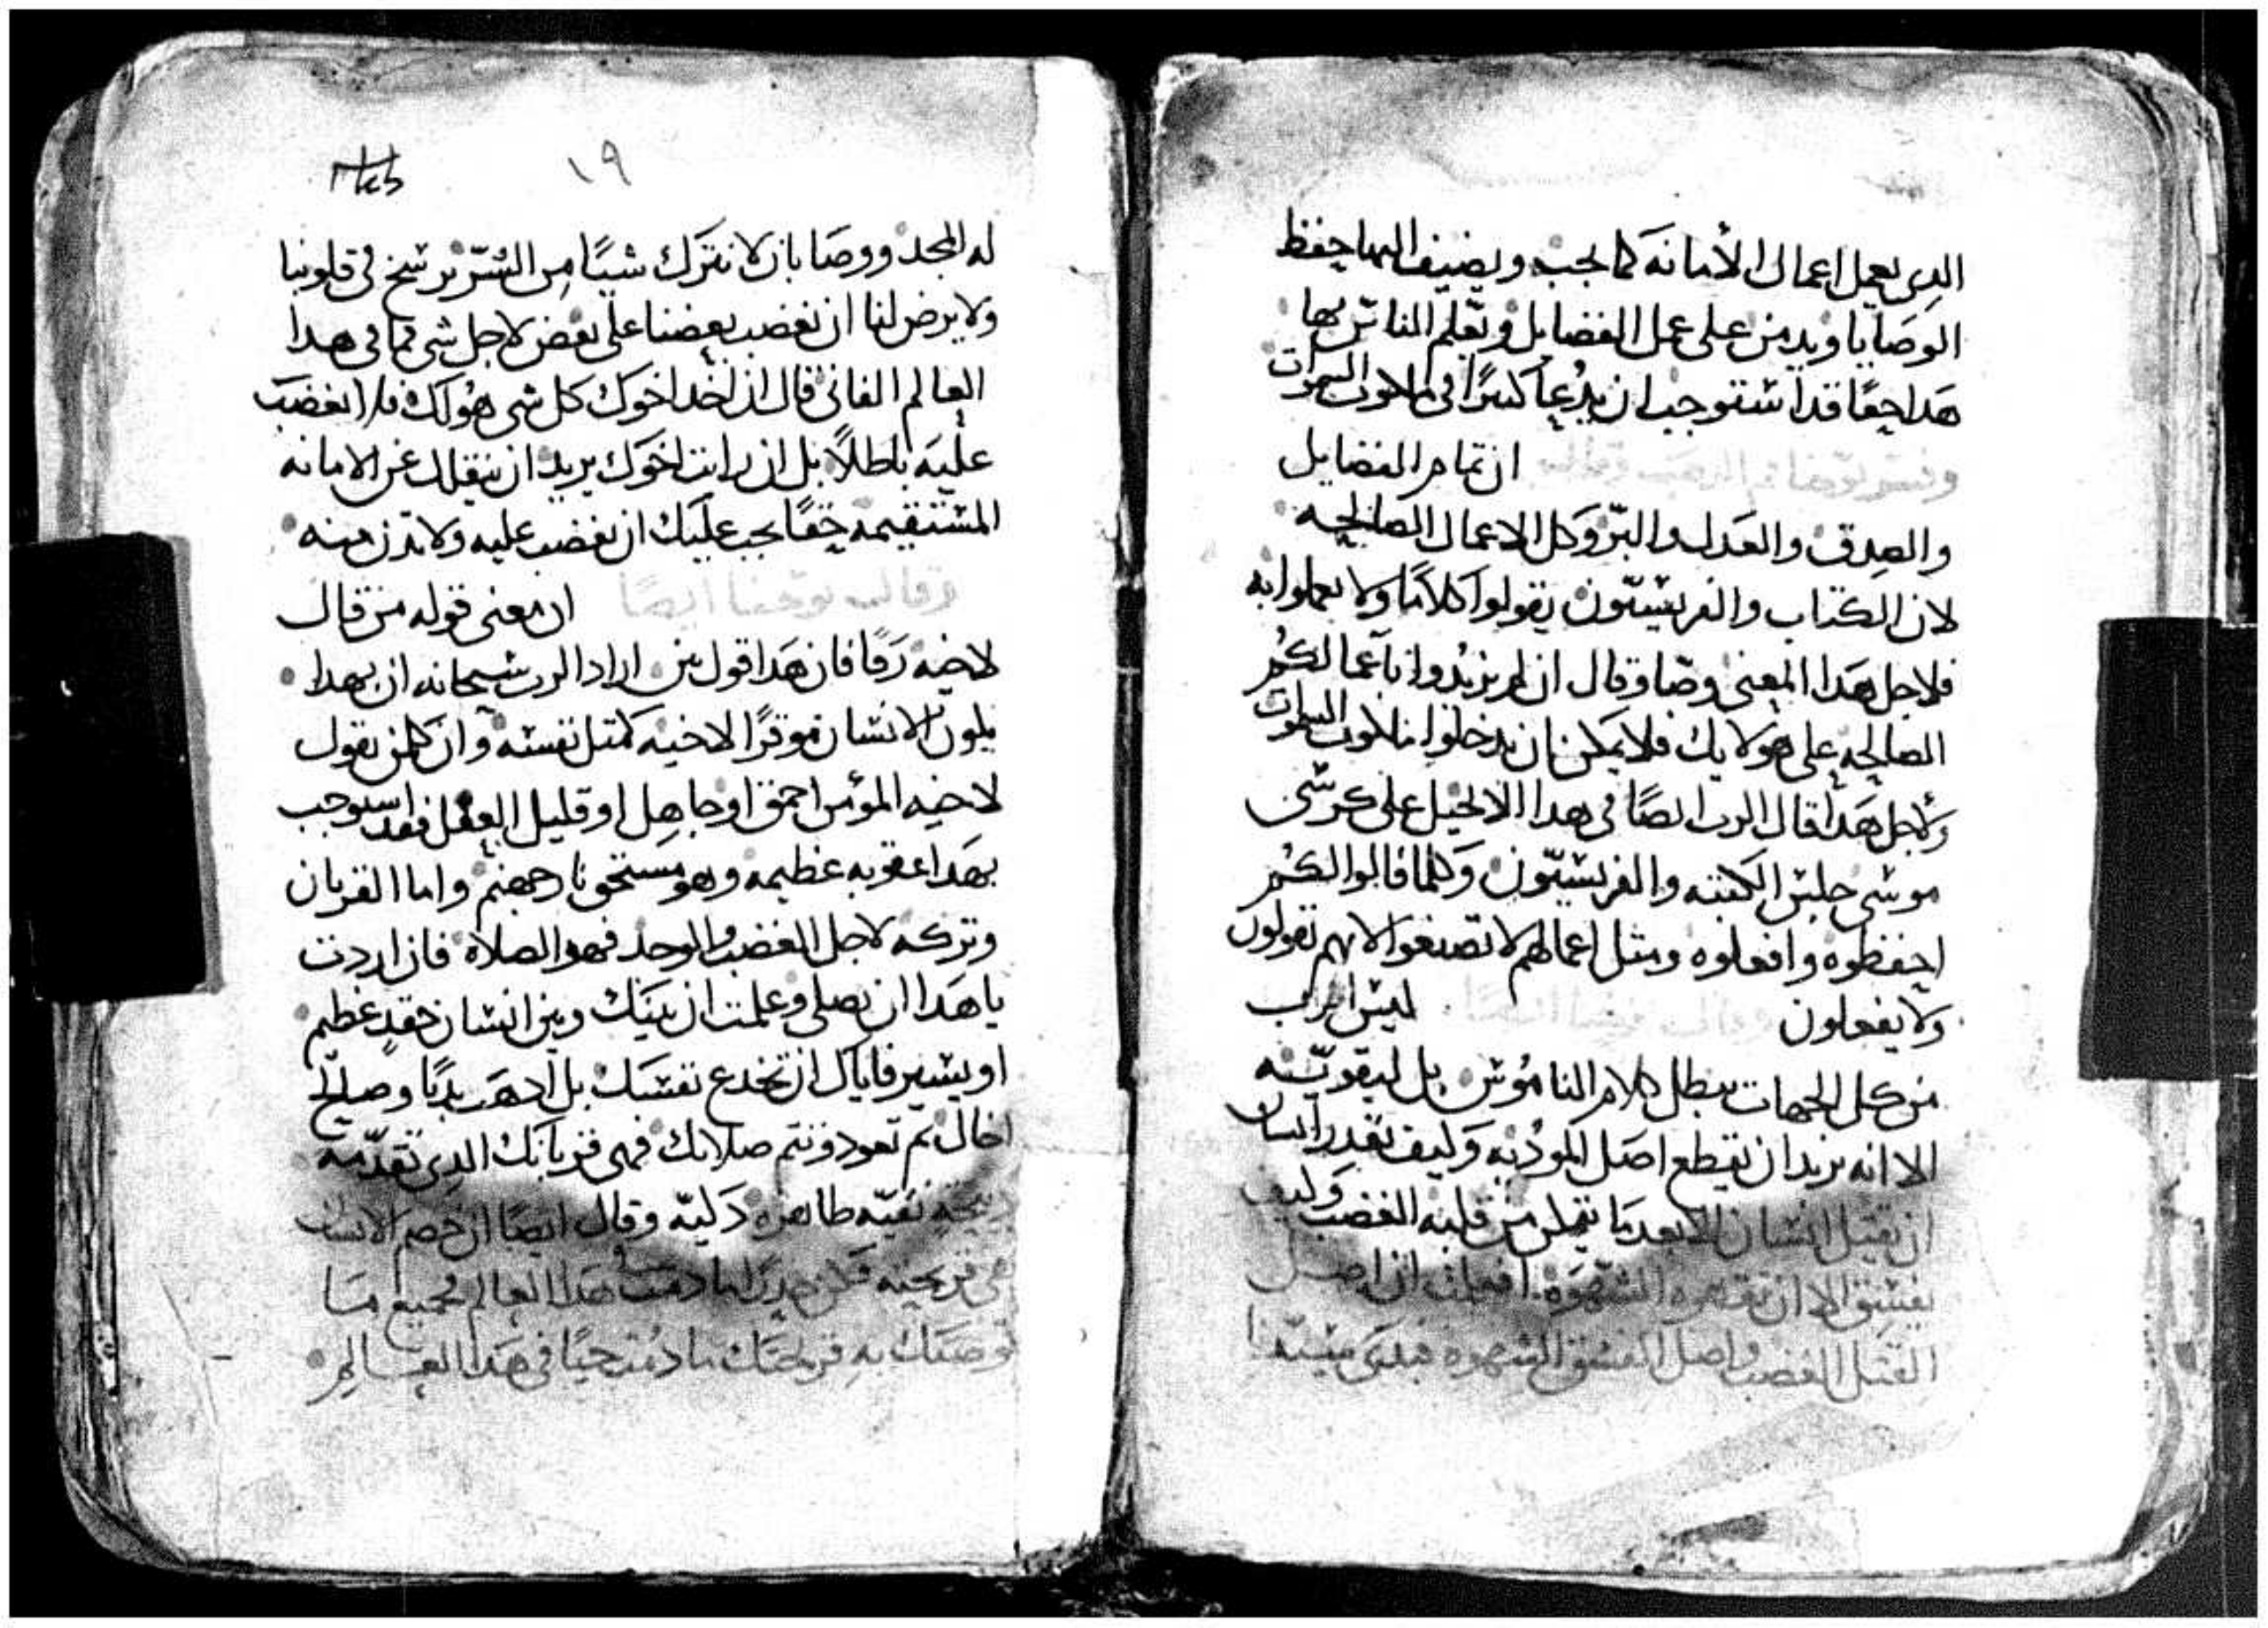 الدى يعمل اعمال الأمانه كما يجب ويضيف اليها حفظ
الوصايا ويدمن على عمل الفضايل ويعلم الناس بها
هدا حقًا قد استوجب ان يدعا كبيرًا فى ملكوت السموات
وفسر يوحنا فم الدهب وقال ان تمام الفضايل
والصدق والعدل والبرّ وكل الاعمال الصالحه
لان الكتاب والفريسيّون يقولوا كلامًا ولا يعملوا به
فلاجل هدا المعنى وصّا وقال ان لم يزيدوا باعمالكم
الصالحه على هولايك فلا يمكن ان تدخلوا ملكوت السموات
ولاجل هدا قال الرب ايضًا فى هدا الانجيل على كرسى
موسى جلس الكتبه والفريسيّون وكلما قالوا لكم
احفظوه وافعلوه ومثل اعمالهم لا تصنعوا لانهم يقولون
ولا يفعلون وقال ايضًا ليس الرب
من كل الجهات يبطل كلام الناموس بل ليقويّه
الا انه يريد ان يقطع اصل الموديه وكيف يقدر انسان
ان يقتل انسان الا بعد ما يتمكن من قلبه الغضب وكيف
يفسق الا ان تقهره الشهوه افعلمت ان اصل
القتل الغضب واصل الفسق الشهوه سيّدنا
١٩
له المجد ووصا بان لا نترك شيًا من الشرّ يرسخ فى قلوبنا
ولا يرض لنا ان نغضب بعضنا على بعض لاجل شى مما فى هدا
العالم الفانى قال ان اخد اخوك كل شى هو لك فلا تغضب
عليه باطلًا بل ان رايت اخوك يريد ان ينقلك عن الامانه
المستقيمه حقًا يجب عليك ان تغضب عليه ولا تدن منه
وقال يوحنا ايضًا ان معنى قوله من قال
لاخيه رقًا فان هدا قول بين اراد الرب سبحانه ان بهدا
يكون الانسان موقرًا لاخيه كمتل نفسه وان كلمن يقول
لاخيه المؤمن احمق او جاهل او قليل العقل فقد استوجب
بهدا عقوبه عظيمه وهو مستحق نار جهنم واما القربان
وتركه لاجل الغضب والوجد فهو الصلاه فان اردت
يا هدا ان تصلى وعلمت ان بينك وبين انسان حقد عظيم
او يسير فاياك ان تخدع نفسك بل ادهب بديًا وصالح
اخاك ثم تعود وتتم صلاتك فهى قربانك الدى تقدّمه
دبيحة نقيّه طاهره دكيّه وقال ايضًا ان خصم الانسان
هى قريحته فكن جيدًا ما دمت فى هدا العالم لجميع ما
توصيك به قريحتك ما دمت حيًا فى هدا العالم